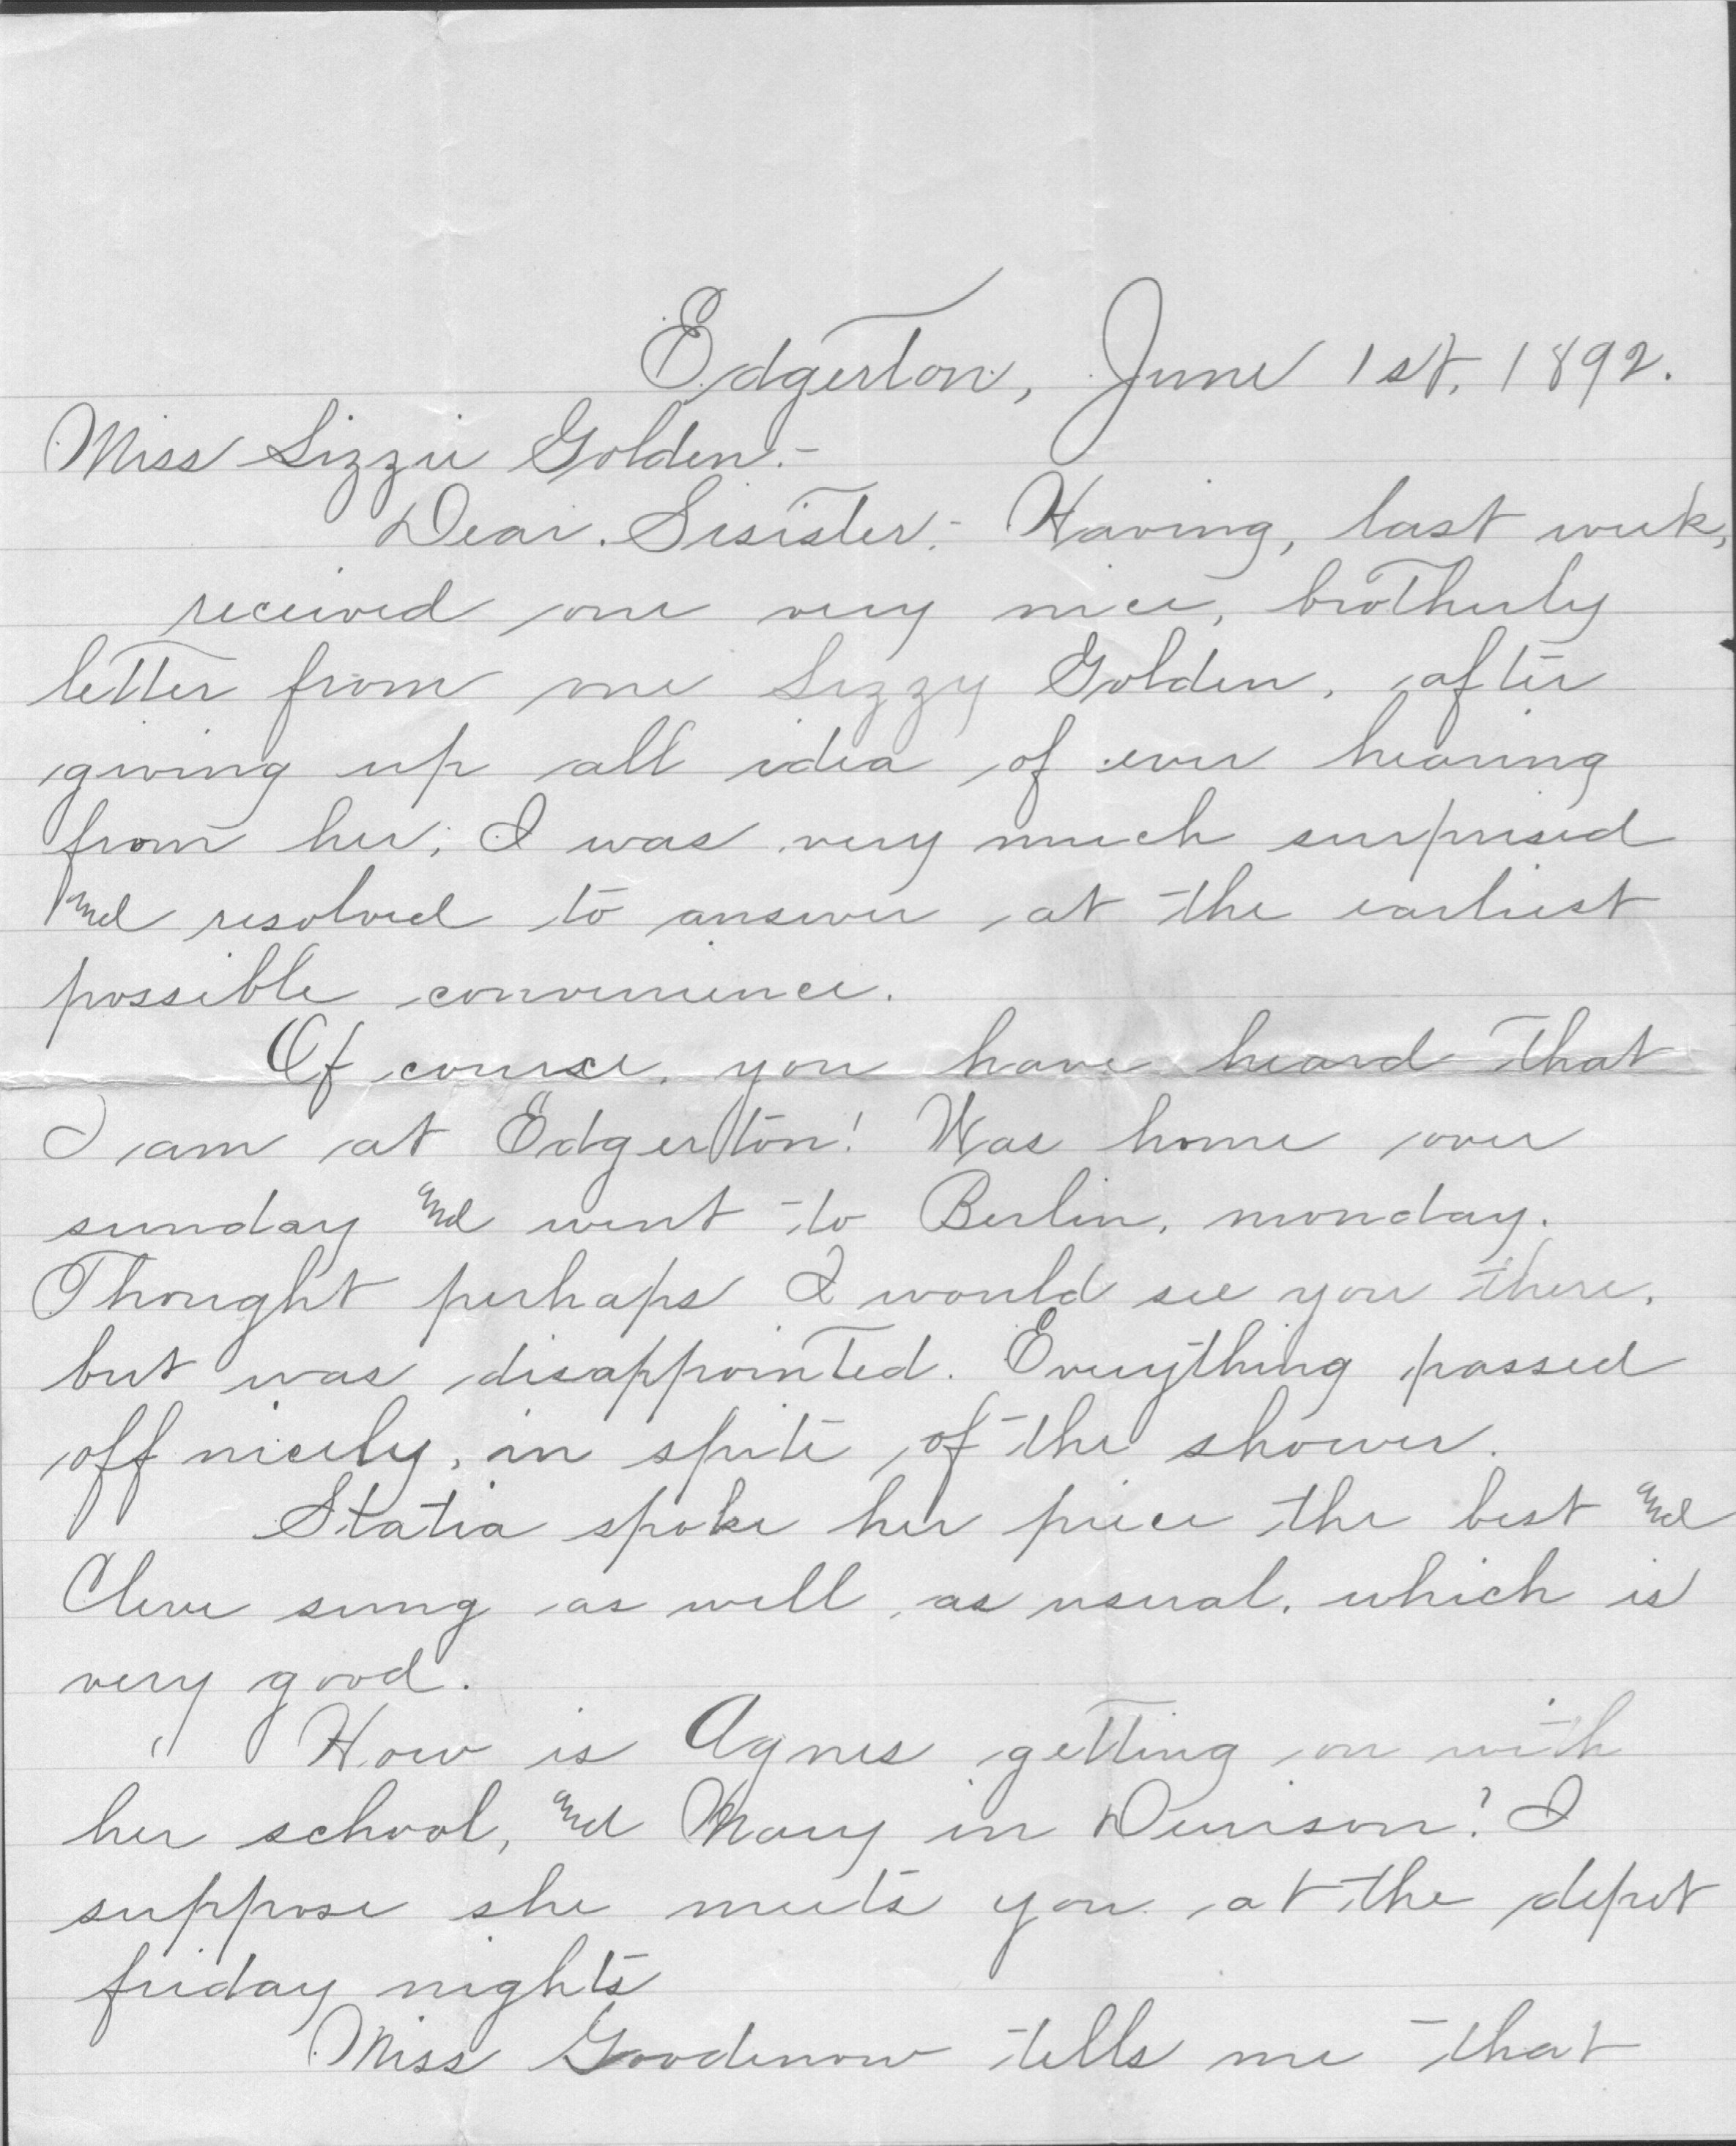 Edgerton, June 1st, 1892.
Miss Lizzie Golden:-
Dear Sisister:- Having, last week,
received one very nice, brotherly
letter from one Lizzy Golden, after
giving up all idea of ever hearing
from her; I was very much surprised
and resolved to answer at the earliest
possible convenience.
Of course, you have heard that
I am at Edgerton! Was home over
sunday and went to Berlin, monday.
Thought perhaps I would see you there,
but was disappointed. Everything passed
off nicely, in spite of the shower.
Statia spoke her piece the best and
Cleve sung as well as usual, which is
very good.
How is Agnes getting on with
her school, and Mary in Denison? I
suppose she meets you at the depot
friday nights
Miss Goodenow tells me that